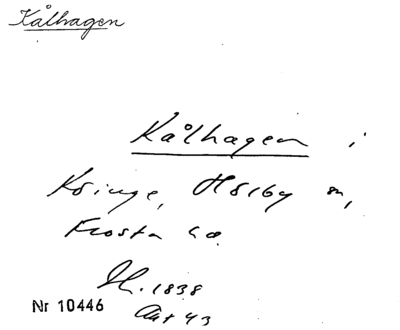 Kålhagen
Kålhagen i
Köinge, Hörby sn,
Frosta hd.
H. 1838
Akt 43
Nr 10446